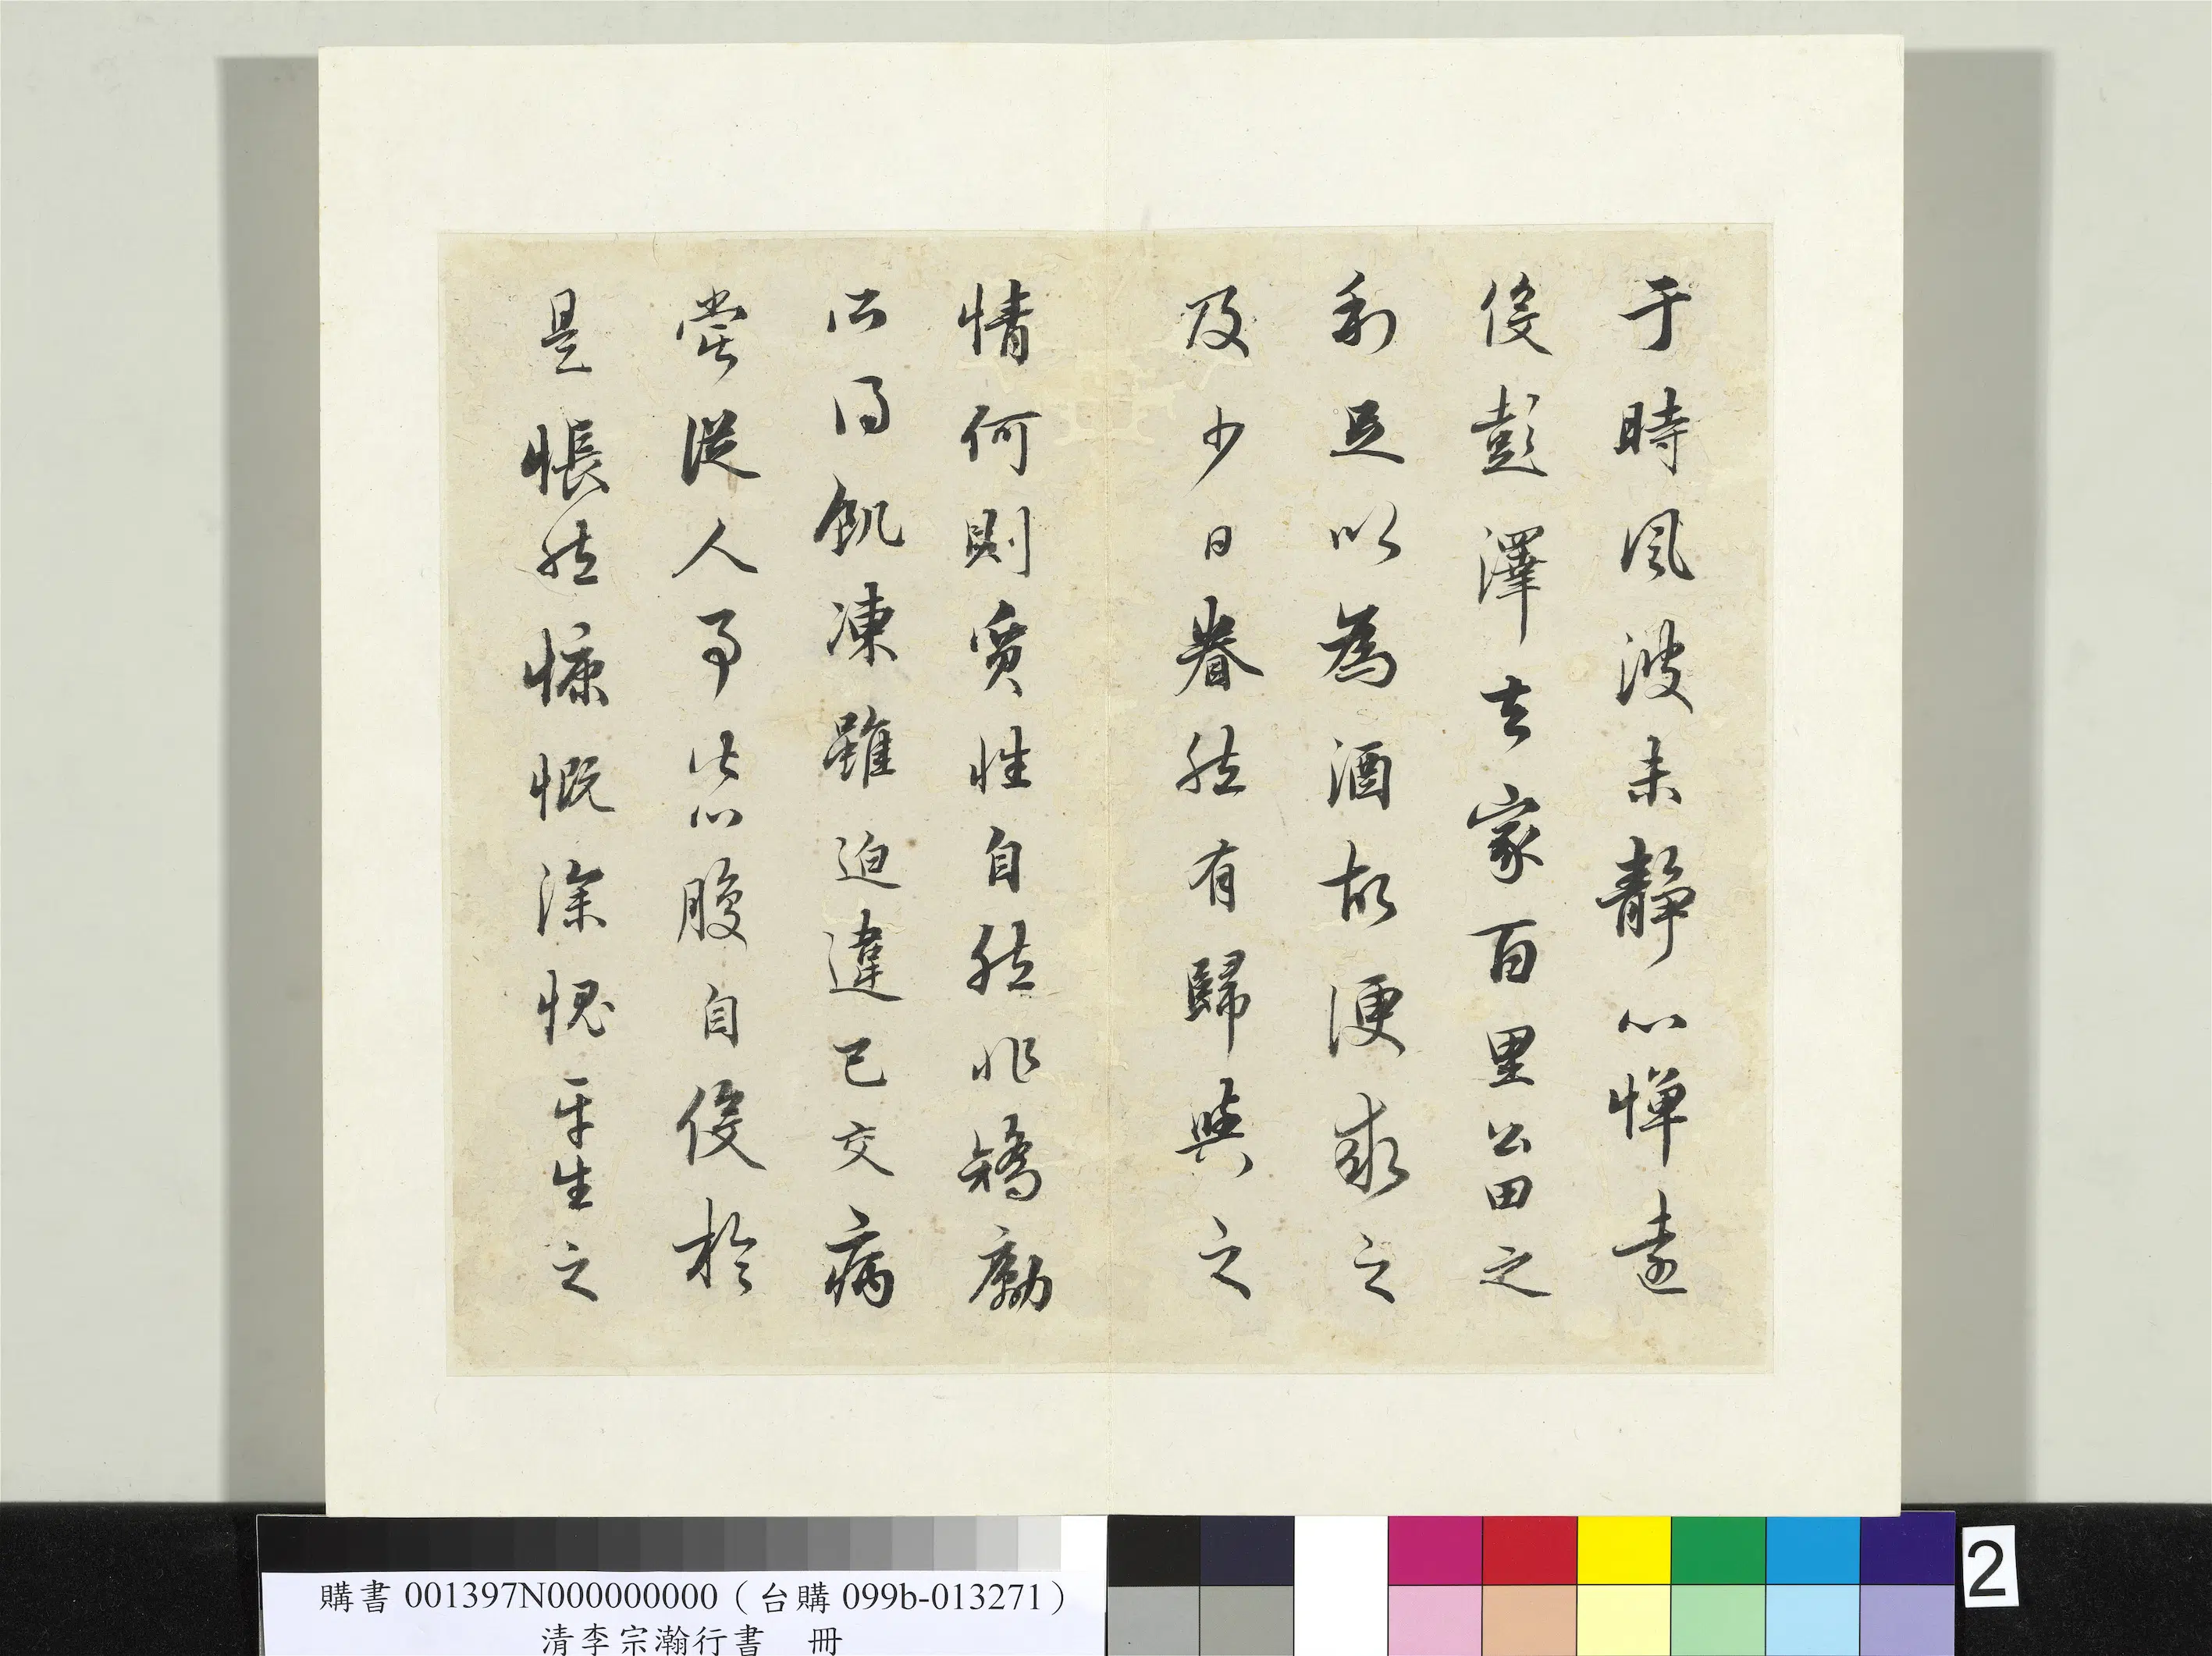 于時風波未靜心憚遠
役彭澤去家百里公田之
利足以為酒故便求之
及少日眷然有歸與之
情何則質性自然非矯勵
所得飢凍雖迫違己交病
嘗從人事皆口腹自役於
是悵然慷慨深愧平生之
購書 001397N000000000（台購 099b-013271）
清李宗瀚行書　冊
2